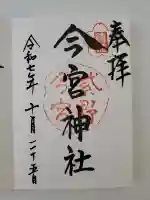 奉拝
今宮神社
令和七年 十月二十五日